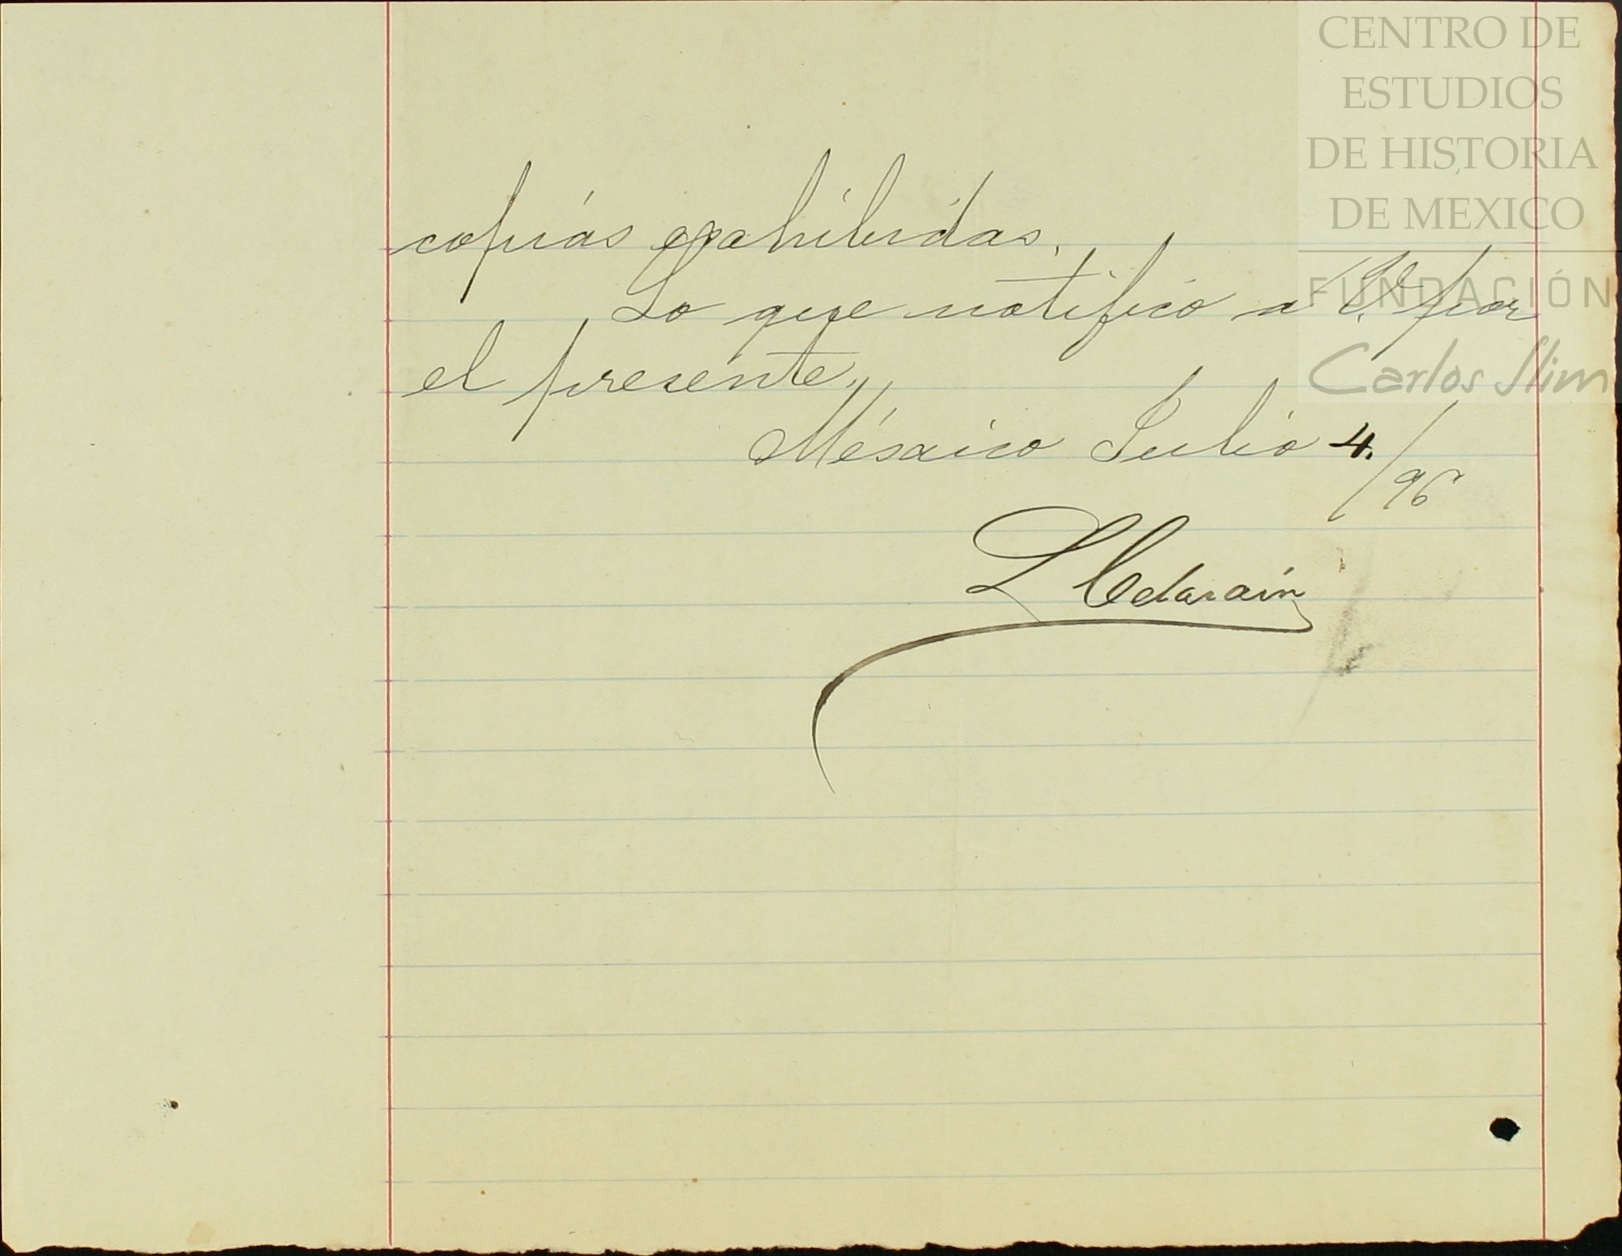 CENTRO DE
ESTUDIOS
DE HISTORIA
DE MEXICO
FUNDACIÓN
Carlos Slim
copias exhibidas.
Lo que notifico a V. por
el presente.
México Julio 4./96
L